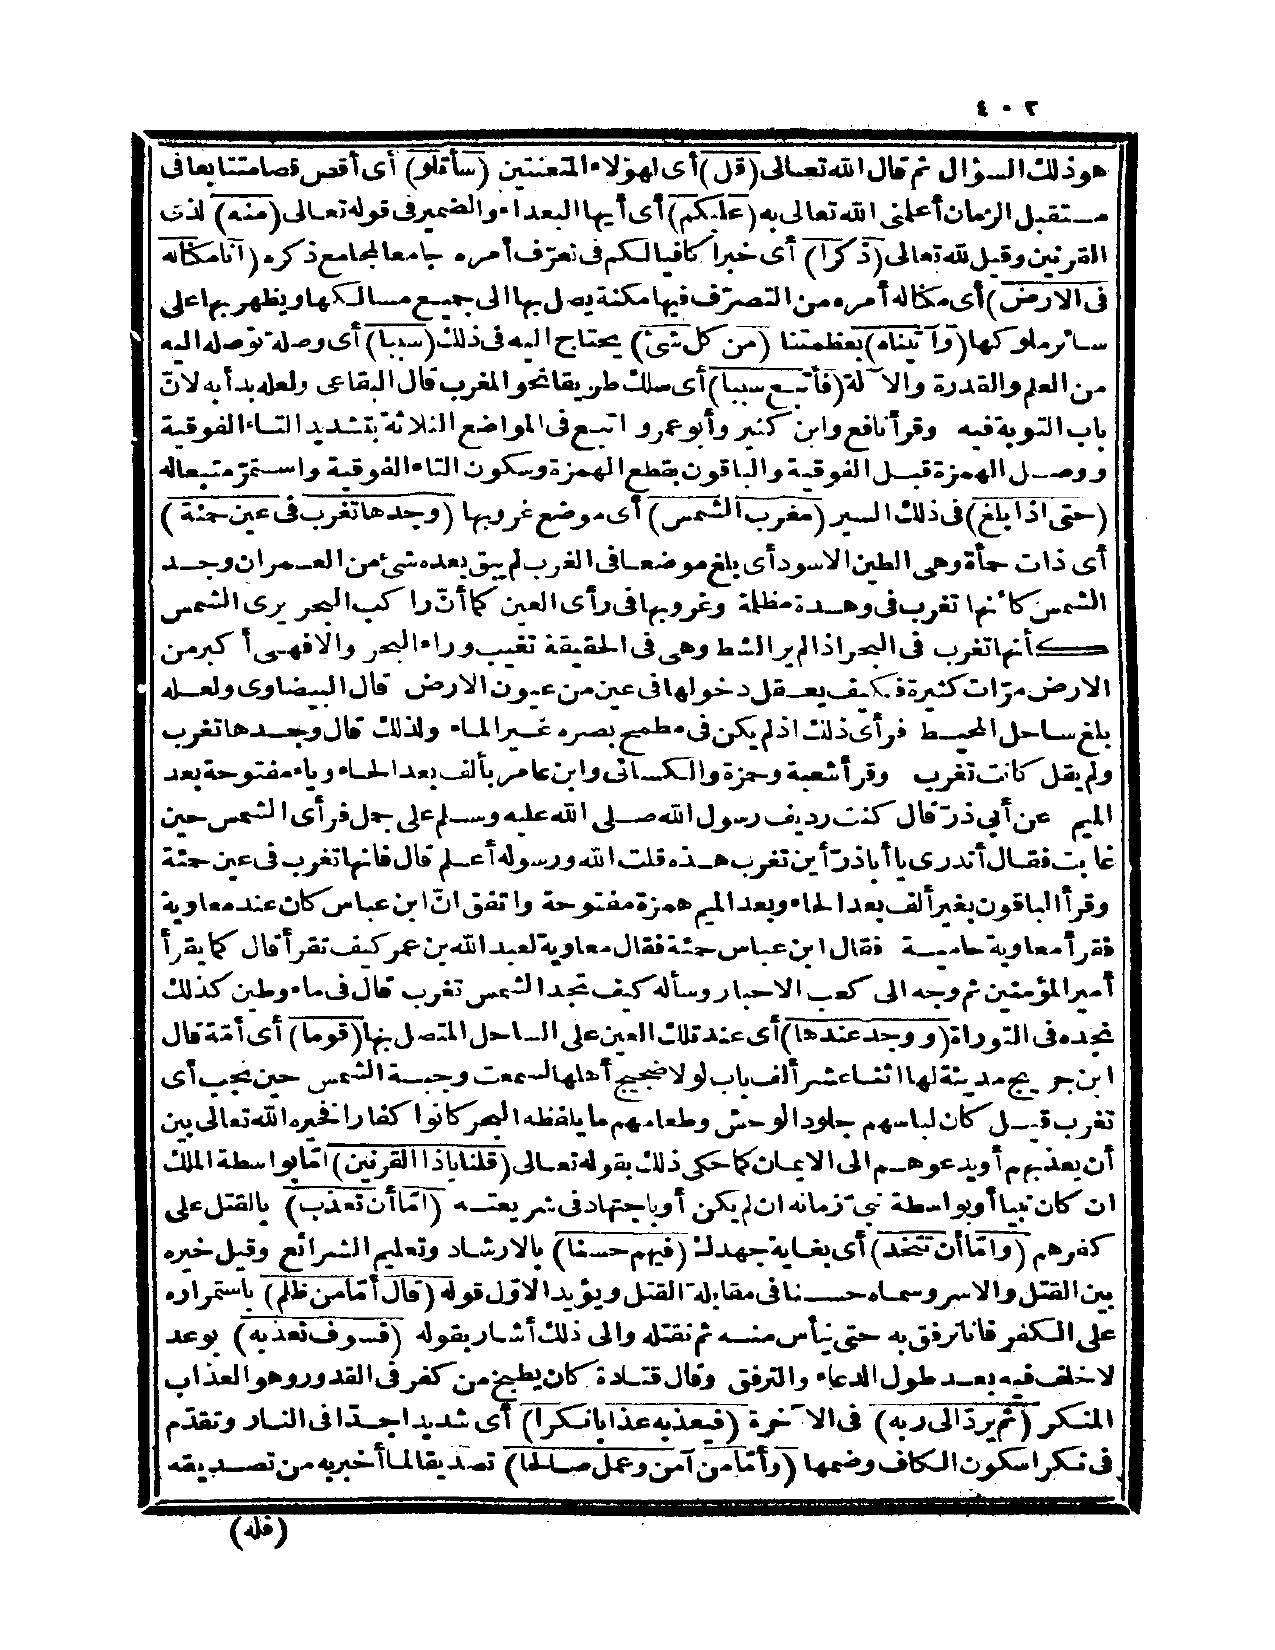 ٤٠٢
هو ذلك السؤال ثم قال الله تعالى (قل) أى لهؤلاء المتعنتين (سأتلو) أى أقص قصا متتابعا فى
مستقبل الزمان أعلمنى الله تعالى به (عليكم) أى أيها البعداء والضمير فى قوله تعالى (منه) لذى
القرنين وقيل لله تعالى (ذكرا) أى خبرا كافيا لكم فى تعرّف أمره جامعا لمجامع ذكره (انا مكنا له
فى الارض) أى مكنا له أمره من التصرّف فيها مكنة يصل بها الى جميع مسالكها ويظهر بها على
سائر ملوكها (وآتيناه) بعظمتنا (من كل شئ) يحتاج اليه فى ذلك (سببا) أى وصلة توصله اليه
من العلم والقدرة والآلة (فأتبع سببا) أى سلك طريقا نحو المغرب قال البقاعى ولعله بدأ به لانّ
باب التوبة فيه وقرأ نافع وابن كثير وأبو عمرو اتبع فى المواضع الثلاثة بتشديد التاء الفوقية
ووصل الهمزة قبل الفوقية والباقون بقطع الهمزة وسكون التاء الفوقية واستمرّ متبعا له
(حتى اذا بلغ) فى ذلك السير (مغرب الشمس) أى موضع غروبها (وجدها تغرب فى عين حمئة)
أى ذات حمأة وهى الطين الاسود أى بلغ موضعا فى الغرب لم يبق بعده شئ من العمران وجد
الشمس كأنها تغرب فى وهدة مظلة وغروبها فى رأى العين كما أنّ راكب البحر يرى الشمس
كأنها تغرب فى البحر اذا لم ير الشط وهى فى الحقيقة تغيب وراء البحر والا فهى أكبر من
الارض مرّات كثيرة فكيف يعقل دخولها فى عين من عيون الارض قال البيضاوى ولعله
بلغ ساحل المحيط فرأى ذلك اذ لم يكن فى مطمح بصره غير الماء ولذلك قال وجدها تغرب
ولم يقل كانت تغرب وقرأ شعبة وحمزة والكسائى وابن عامر بألف بعد الحاء وياء مفتوحة بعد
الميم عن أبى ذرّ قال كنت رديف رسول الله صلى الله عليه وسلم على جمل فرأى الشمس حين
غابت فقال أتدرى يا أباذرّ أين تغرب هذه قلت الله ورسوله أعلم قال فانها تغرب فى عين حمئة
وقرأ الباقون بغير ألف بعد الحاء وبعد الميم همزة مفتوحة واتفق انّ ابن عباس كان عند معاوية
فقرأ معاوية حامية فقال ابن عباس حمئة فقال معاوية لعبد الله بن عمر كيف تقرأ قال كما يقرأ
أمير المؤمنين ثم وجه الى كعب الاحبار وسأله كيف تجد الشمس تغرب قال فى ماء وطين كذلك
نجده فى التوراة (ووجد عندها) أى عند تلك العين على الساحل المتصل بها (قوما) أى أمّة قال
ابن جريج مدينة لها اثنا عشر ألف باب لولا ضجيج أهلها لسمعت وجبة الشمس حين تجب أى
تغرب قيل كان لباسهم جلود الوحش وطعامهم ما يلفظه البحر كانوا كفارا فخيره الله تعالى بين
أن يعذبهم أو يدعوهم الى الايمان كما حكى ذلك بقوله تعالى (قلنا ياذا القرنين) امّا بواسطة الملك
ان كان نبيا أو بواسطة نبىّ زمانه ان لم يكن أو باجتهاد فى شريعته (امّا أن تعذب) بالقتل على
كفرهم (وامّا أن تتخذ) أى بغاية جهدك (فيهم حسنا) بالارشاد وتعليم الشرائع وقيل خيره
بين القتل والاسر وسماه حسنا فى مقابلة القتل ويؤيد الاوّل قوله (قال أمّا من ظلم) باستمراره
على الكفر فانا نرفق به حتى نيأس منه ثم نقتله والى ذلك أشار بقوله (فسوف نعذبه) بوعد
لا خلف فيه بعد طول الدعاء والترفق وقال قتادة كان يطبخ من كفر فى القدور وهو العذاب
المنكر (ثم يردّ الى ربه) فى الآخرة (فيعذبه عذابا نكرا) أى شديدا جدّا فى النار وتقدّم
فى نكرا سكون الكاف وضمها (وأمّا من آمن وعمل صالحا) تصديقا لما أخبر به من تصديقه
(فله)